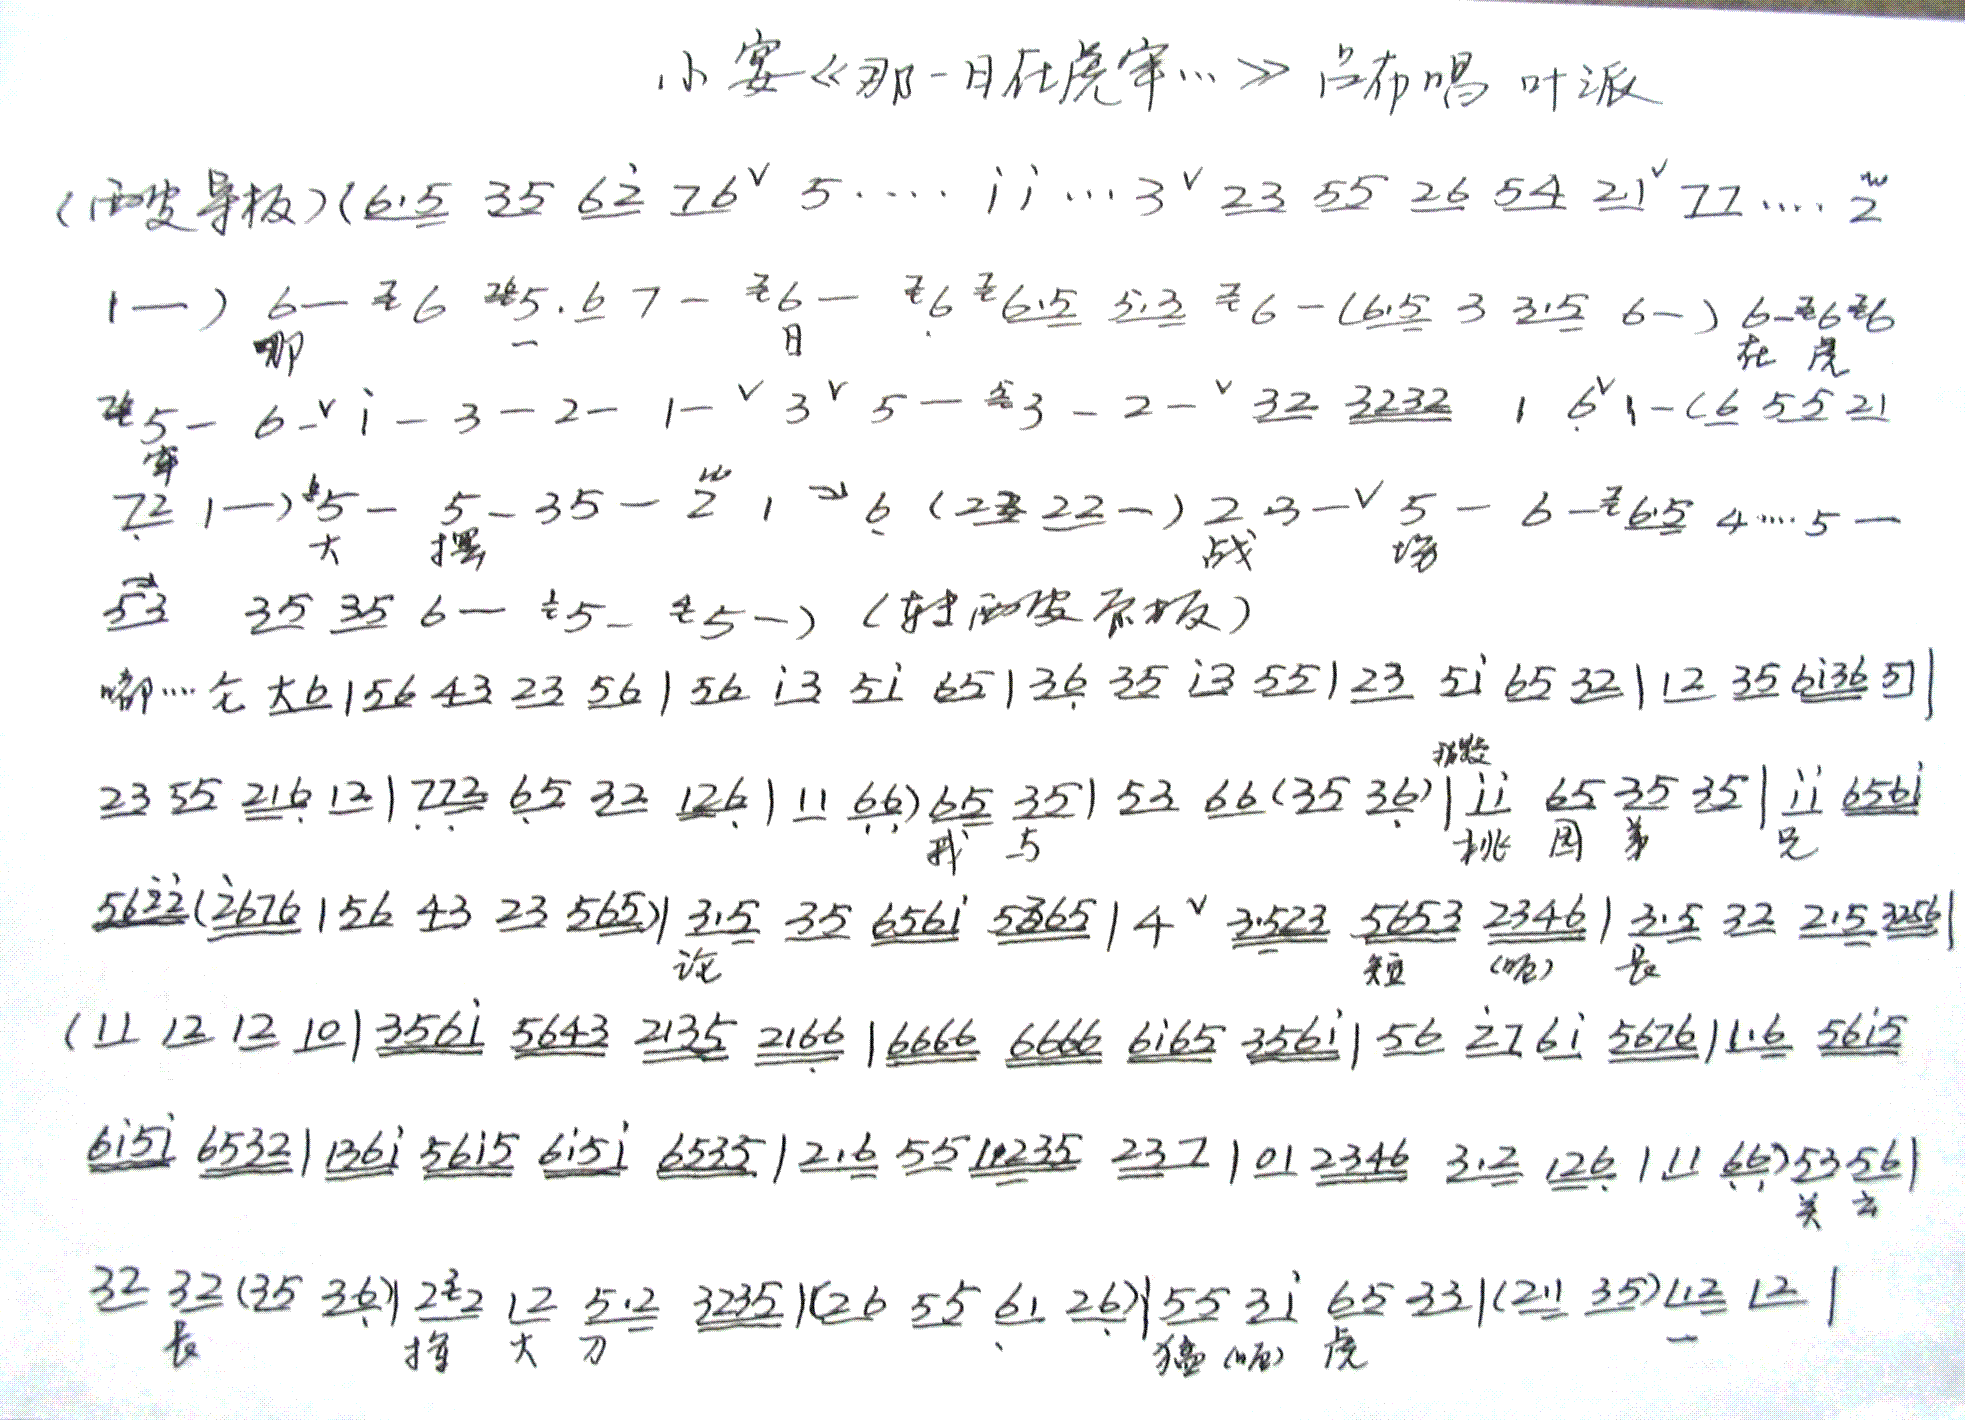 小宴《那一日在虎牢…》吕布唱 叶派
(西皮导板)(6·5 35 62̇ 76ⱽ 5···· i i ···3ⱽ 23 55 26 54 21ⱽ 77···· 2
1—) 6— ⁷6 ⁷⁶5·6 7— ⁷6— ⁷6 ⁷6·5 5·3 ⁷6—(6·5 3 3·5 6—) 6—⁷6⁷6
那 一 日 在 虎
⁷⁶5— 6—ⱽ i—3—2— 1—ⱽ 3ⱽ 5—⁵3—2—ⱽ 32 3232 1 6̣ⱽ 1—(6 55 21
牢
7̣2 1—) ⁶5— 5—35—2 1 6̣ (23 22—) 2·3—ⱽ 5—6—⁷6·5 4····5—
大 摆 战 场
53 35 35 6— ¹5— ⁴5—) (转西皮原板)
嘟···仓 大6|56 43 23 56|56 i3 5i 65|36̣ 35 i3 55|23 5i 65 32|12 35 6i36 5|
23 55 216̣ 12|7̣7̣2 6̣5 32 126̣|11 6̣6̣)65 35|53 66(35 36̣)|ii 65 35 35|ii 656i
我 与 桃 园 弟 兄
562̇2̇(2̇676|56 43 23 565)|3·5 35 656i 5365|4ⱽ 3·523 5653 2346|3·5 32 2·5 3256|
论 短 (呃) 长
(11 12 12 10|356i 5643 2135 2166̣|6666 6666 6i65 356i|56 2̇7 6i 5676|1·6 56i5
6i5i 6532|136i 56i5 6i5i 6535|2·6 55 1·235 237|01 2346 3·2 126̣|11 6̣6̣)53 56|
关 云
32 32(35 36̣)|2³2 12 5·2 3235|(26 55 6̣1 26̣)|55 3i 65 33|(211 35)1·2 12|
长 挥 大 刀 猛 (呃) 虎 一